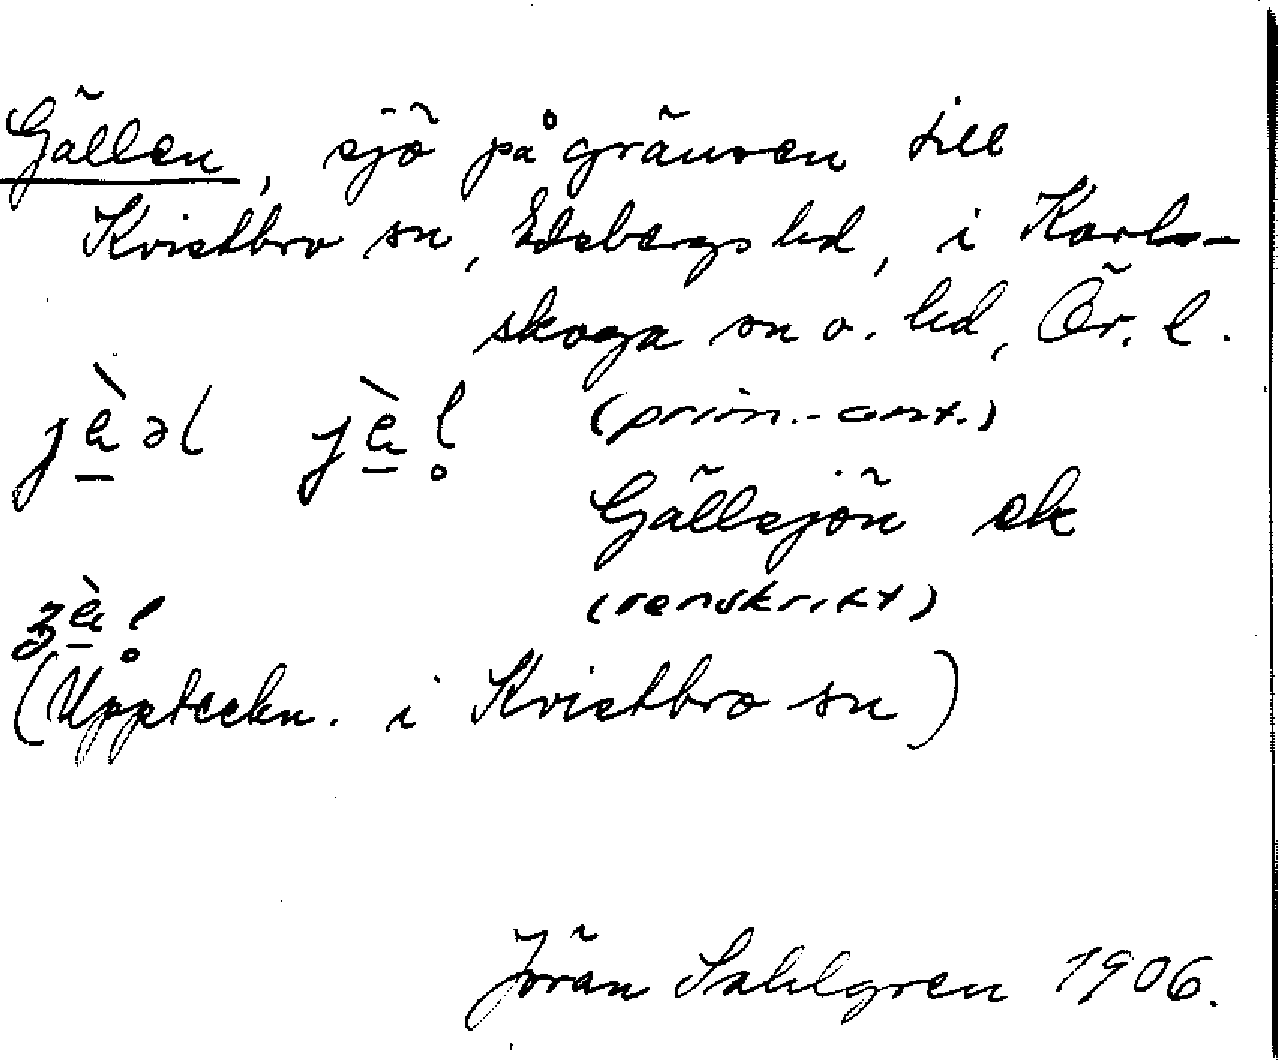 Gällen, sjö på gränsen till
Kvistbro sn, Edsbergs hd, i Karl-
skoga sn o. hd, Ör. l.
jè̱əl jè̱l̥ (prim.-ant.)
Gällsjön ek
ʒè̱l̥ (renskrift)
(Uppteckn. i Kvistbro sn)
Jöran Sahlgren 1906.